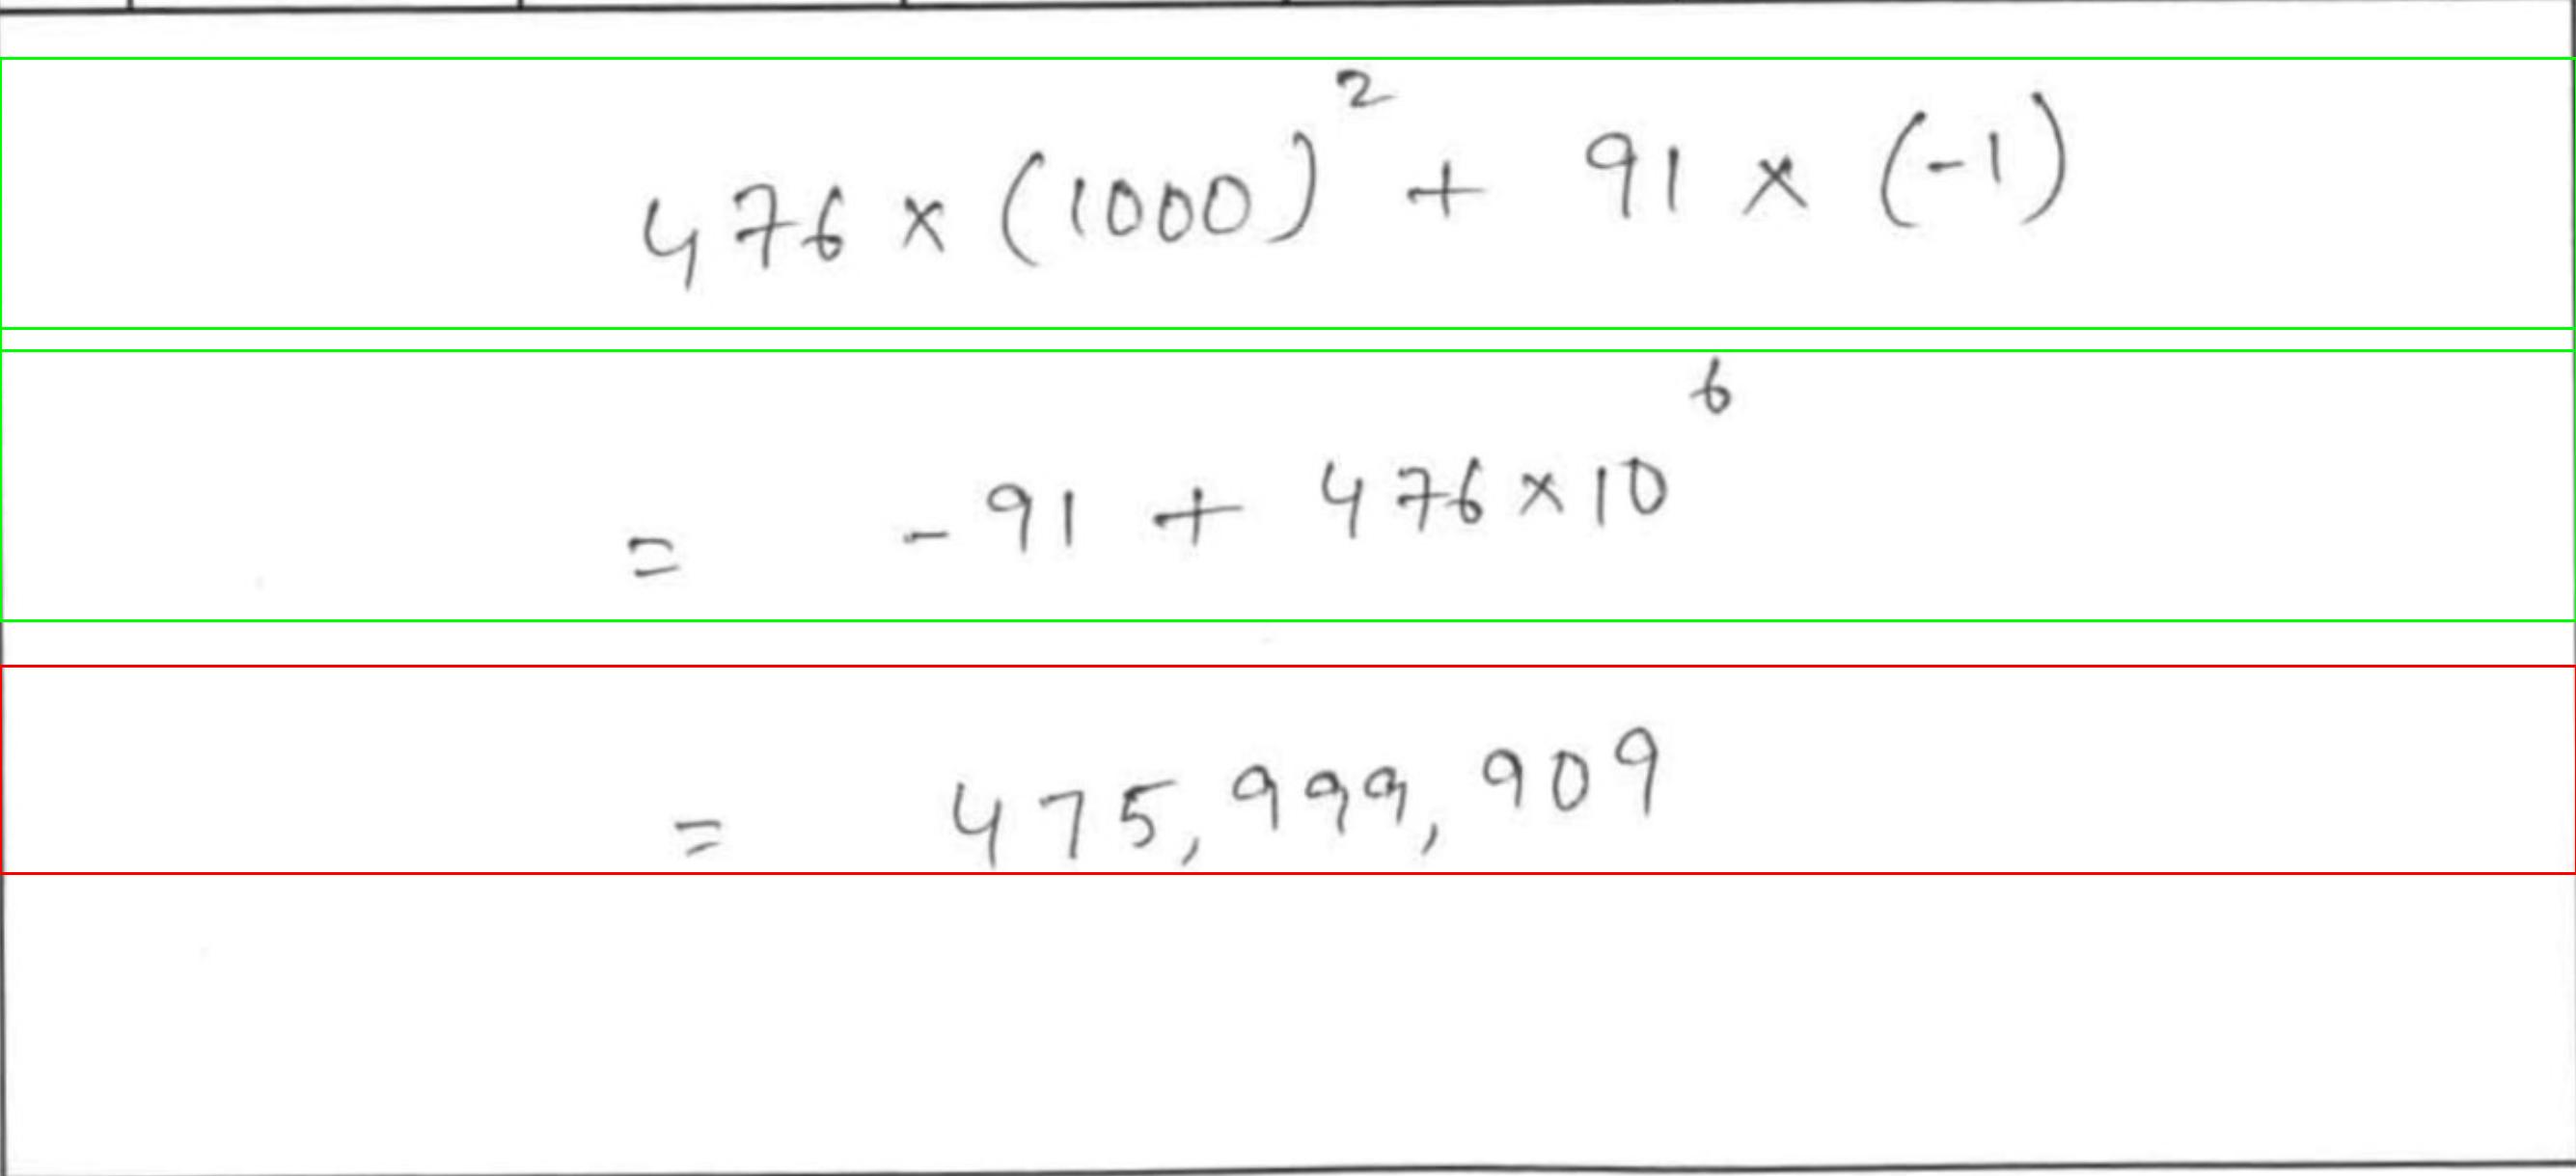 476 × (1000)² + 91 × (-1)
= -91 + 476 × 10⁶
= 475,999,909